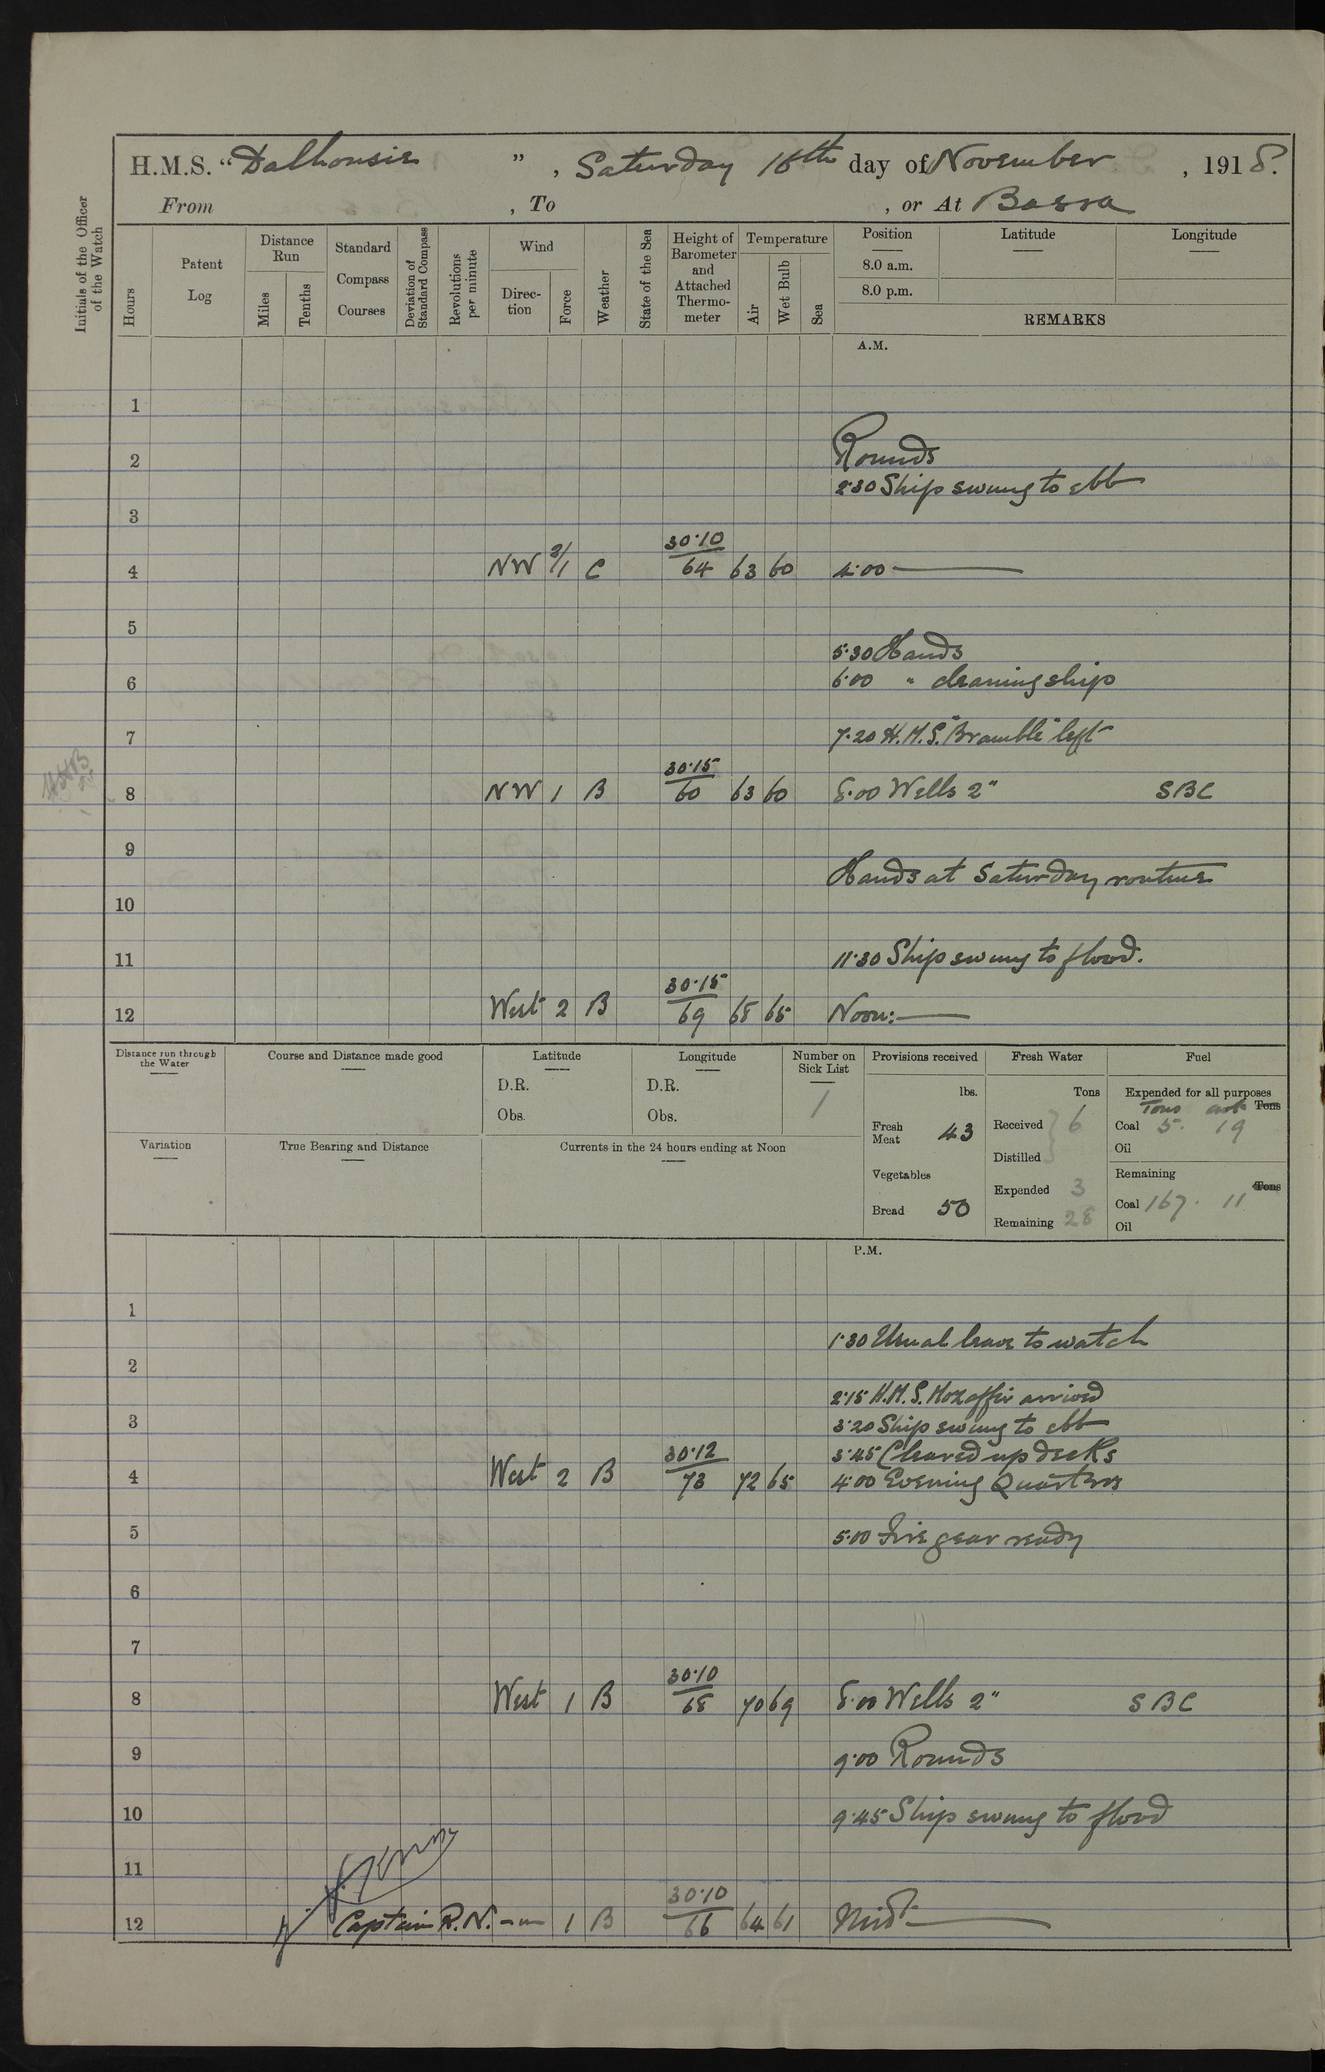 H.M.S. "Dalhousie", Saturday 16th day of November, 1918.
From , To , or At Basra
Initials of the Officer of the Watch
Hours
Patent Log
Distance Run
Miles
Tenths
Standard Compass Courses
Deviation of Standard Compass
Revolutions per minute
Wind
Direction
Force
Weather
State of the Sea
Height of Barometer and Attached Thermometer
Temperature
Air
Wet Bulb
Sea
Position
8.0 a.m.
8.0 p.m.
Latitude
Longitude
REMARKS
A.M.
1
2 Rounds
2.30 Ship swung to ebb
3
4 NW 2/1 C 30.10/64 63 60 4.00
5
5.30 Hands
6 6.00 " cleaning ship
7 7.20 H.M.S. "Bramble" left
8 NW 1 B 30.15/60 63 60 8.00 Wells 2" SBC
9
Hands at Saturday routine
10
11 11.30 Ship swung to flood.
12 West 2 B 30.15/69 68 65 Noon:
Distance run through the Water
Course and Distance made good
Latitude
D.R.
Obs.
Longitude
D.R.
Obs.
Number on Sick List
1
Provisions received
lbs.
Fresh Meat 43
Vegetables
Bread 50
Fresh Water
Tons
Received 6
Distilled
Expended 3
Remaining 28
Fuel
Expended for all purposes
Tons cwt Tons
Coal 5. 19
Oil
Remaining
Tons
Coal 167. 11
Oil
Variation
True Bearing and Distance
Currents in the 24 hours ending at Noon
P.M.
1
1.30 Usual leave to watch
2
2.15 H.M.S. Mozaffir arrived
3 3.20 Ship swung to ebb
3.45 Cleared up decks
4 West 2 B 30.12/73 72 65 4.00 Evening Quarters
5 5.00 Fire gear ready
6
7
8 West 1 B 30.10/68 70 69 8.00 Wells 2" SBC
9 9.00 Rounds
10 9.45 Ship swung to flood
11
12 Captain R.N. -"- 1 B 30.10/66 64 61 Midt